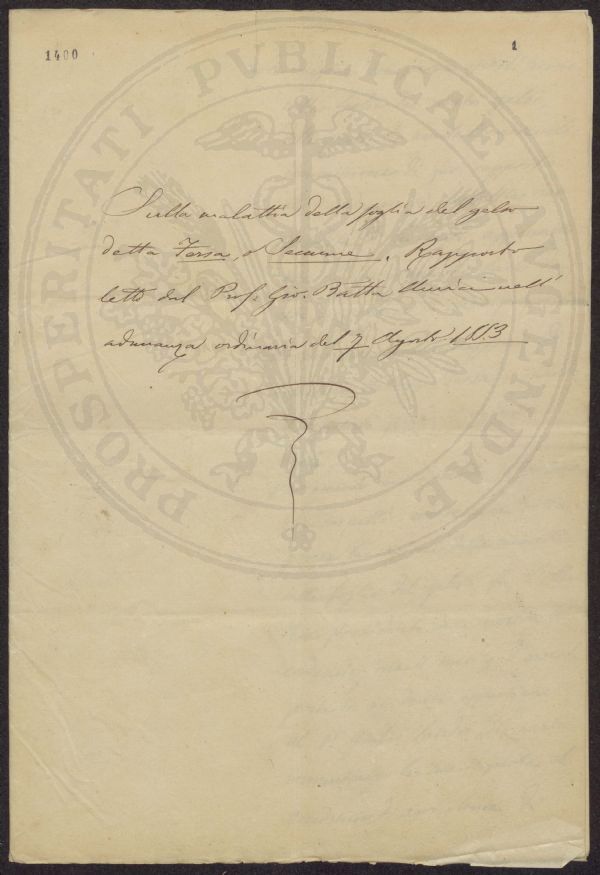 1400
1
PROSPERITATI PVBLICAE AVGENDAE
Sulla malattia della foglia del gelso
detta Fersa, o Seccume. Rapporto
letto dal Prof. Gio. Batta Amici nell'
adunanza ordinaria del 7 Agosto 1853